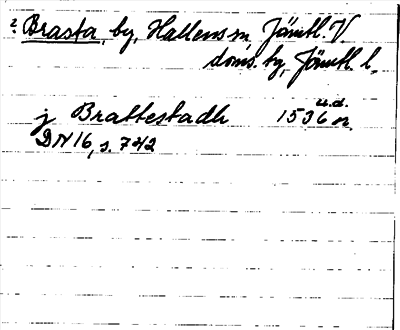 2. Brasta, by, Hallens sn, Jämtl. V.
doms. by, Jämtl. l.
u.d.
j Brattestadh 1536 or.
DN 16, s. 742